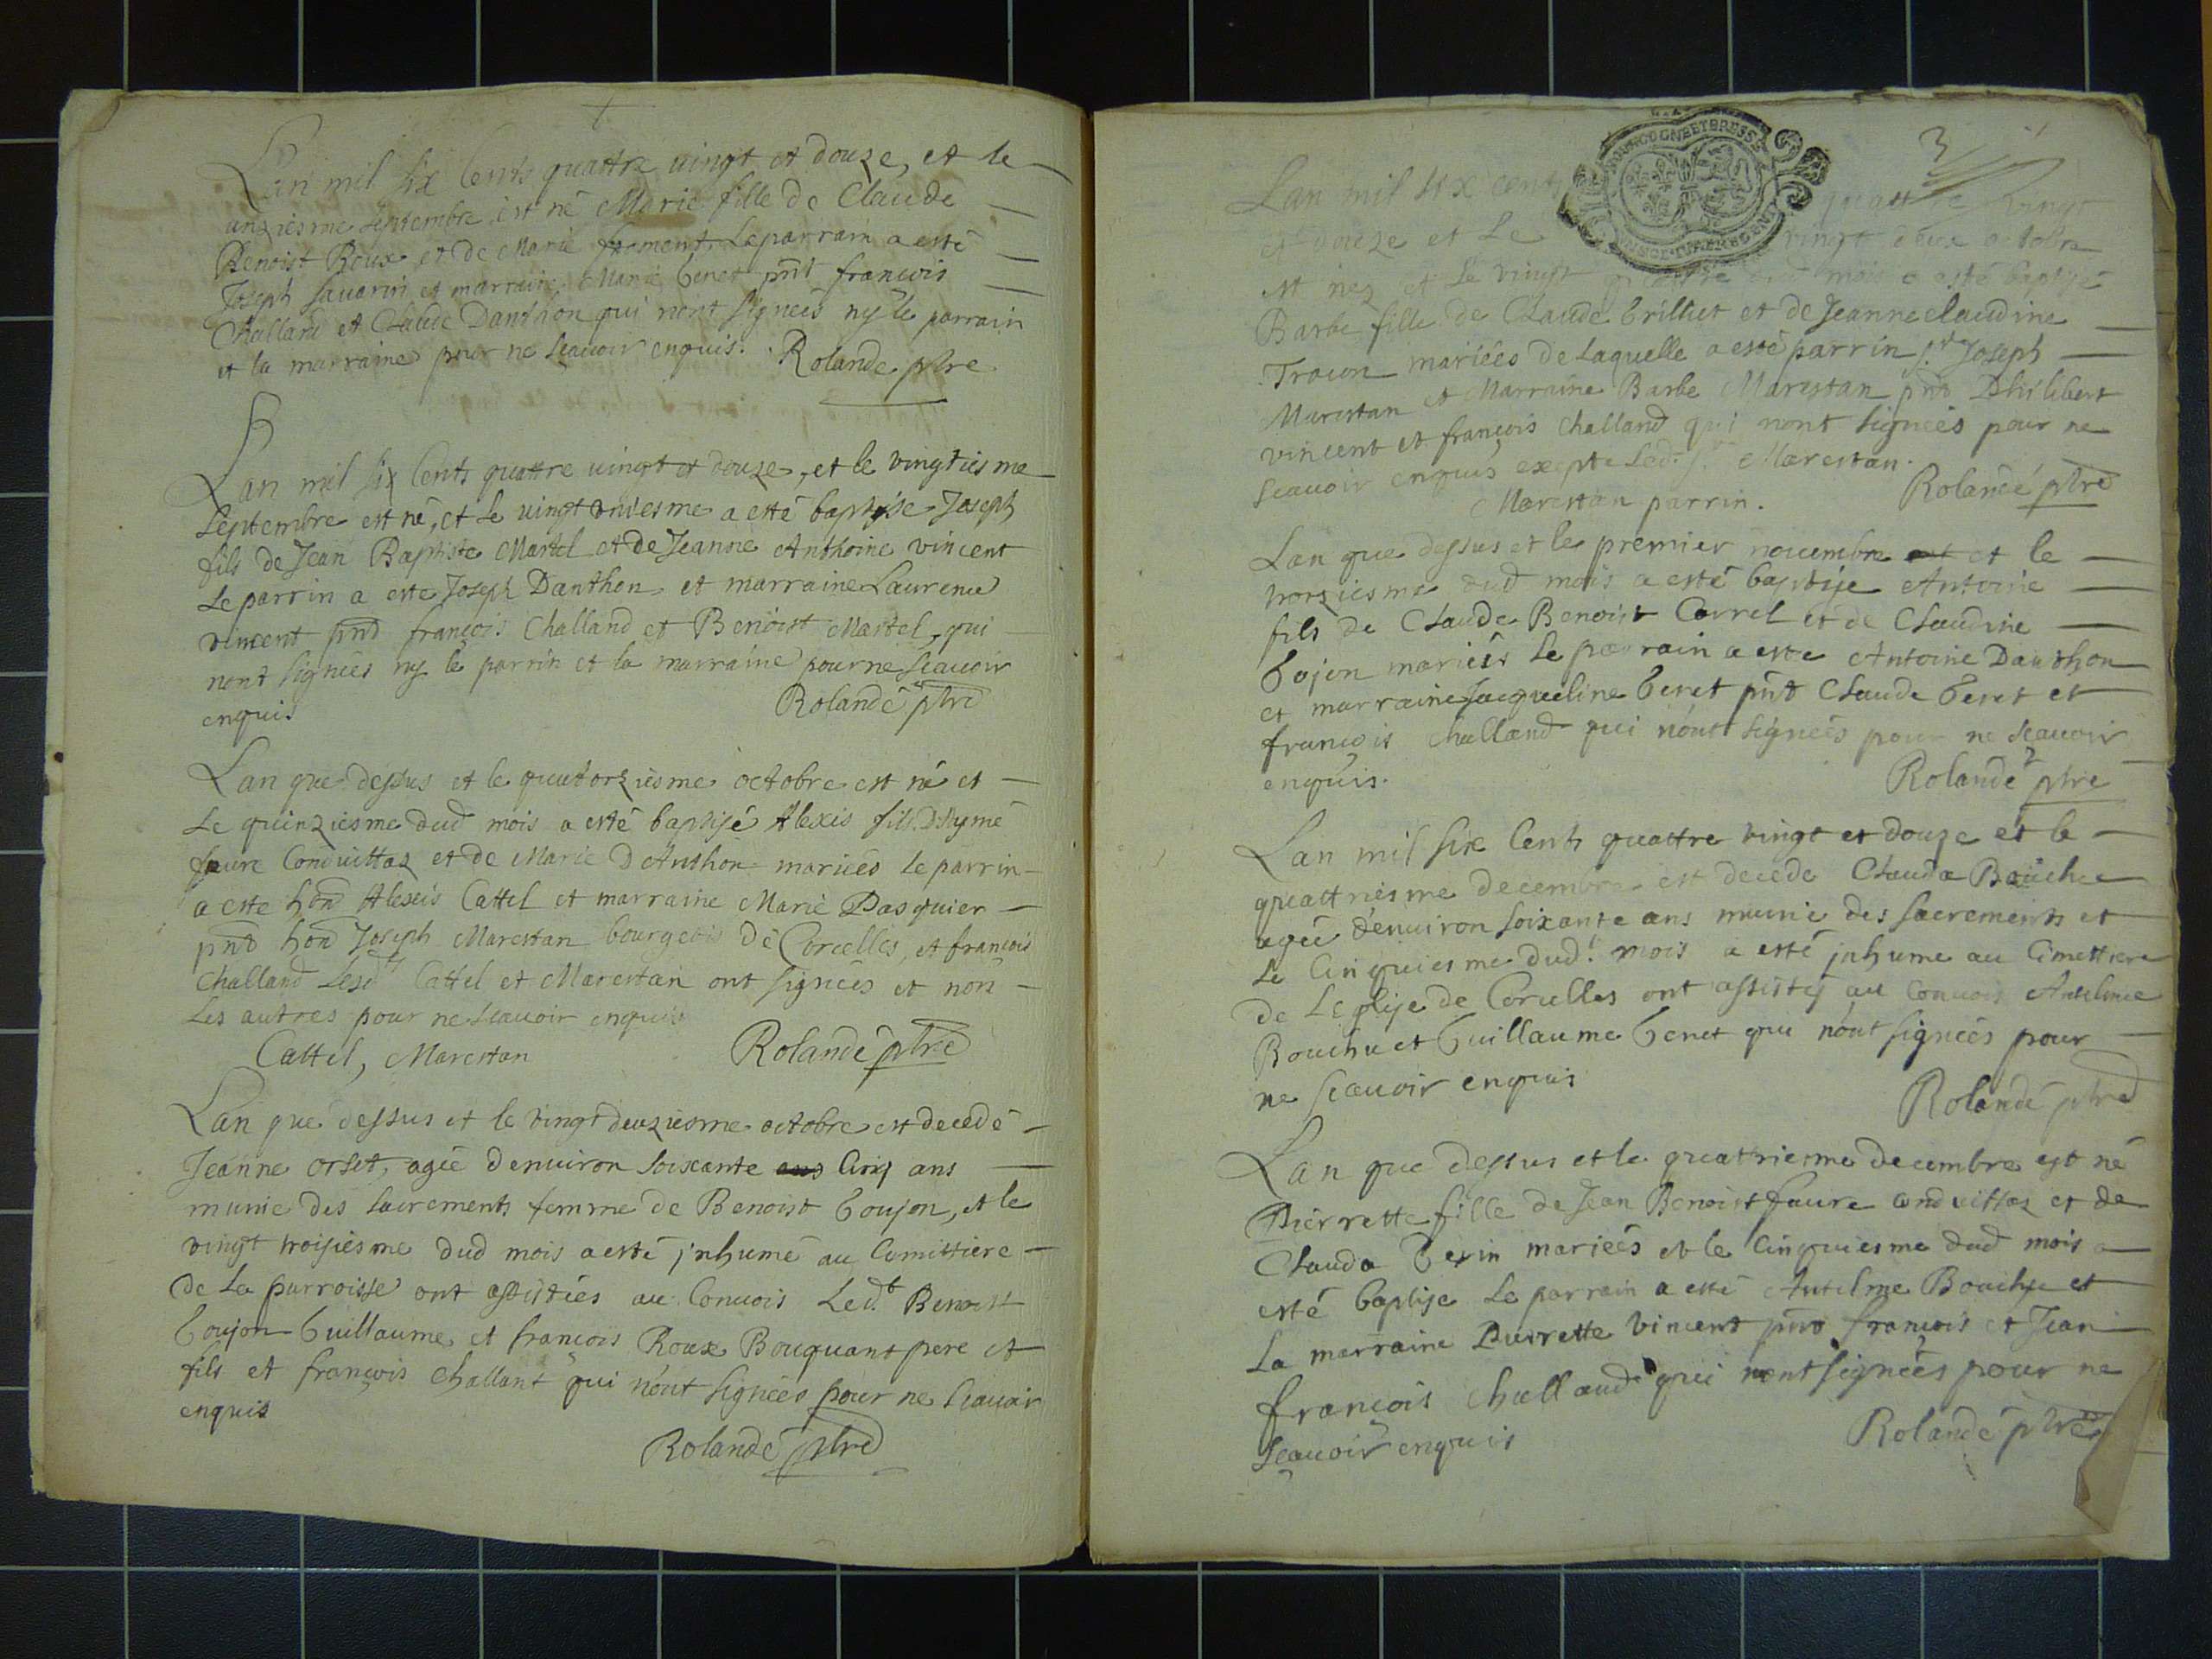 Lan mil six Cents quattre vingt et douze, et le
unziesme septembre est né Marie fille de Claude
Benoist Roux et de Marie froment Le parrain a esté
Joseph Sauarin et marraine Marie Genet pnt françois
Challand et Claude Danthon qui nont signees ny le parrain
et la marraine pour ne scauoir enquis. Rolande ptre
Lan mil six Cents quattre vingt et douze, et le vingtiesme
septembre est né, et le vingt uniesme a esté baptise Joseph
fils de Jean Baptiste Martel et de Jeanne Anthoine vincent
Le parrin a este Joseph Danthon et marraine Laurence
vincent pnd françois Challand et Benoist Martel, qui
nont signees ny le parrin et la marraine pour ne scauoir
enquis Rolande ptre
Lan que dessus et le quatorziesme octobre est né et
Le quinziesme dud mois a esté baptisé Alexis fils D'Aymé
faure Conduittaz et de Marie D'Anthon mariées le parrin
a este hon Alexis Cattel et marraine Marie Pasquier
pnd hon Joseph Marestan bourgeois de Corcelles, et françois
Challand Lesd Cattel et Marestan ont signées et non
les autres pour ne scauoir enquis
Cattel, Marestan Rolande ptre
Lan que dessus et le vingt deuziesme octobre est decedé
Jeanne orset, agée d'enuiron soixante ans Cinq ans
munie des sacrements femme de Benoist Goujon, et le
vingt troisiesme dud mois a esté inhumé au Cimittiere
de La parroisse ont assistées au Conuois Led.t Benoist
Goujon Guillaume et françois Roux Bouquant pere et
fils et françois Challant qui nont signées pour ne scauoir
enquis
Rolande ptre
3
Lan mil six cent quattre vingt
et douze et Le vingt deux octobre
est nez et Le vingt mois a esté baptisé
Barbe fille de Claude Grilliet et de Jeanne claudine
mariées de Laquelle a esté parrin s.r Joseph
Marestan et Marraine Barbe Marestan pnd Philibert
vincent et françois Challand qui nont signees pour ne
scauoir enquis exepte Led. s.r Marestan.
Marestan parrin. Rolande ptre
Lan que dessus et le premier nouembre est et le
troisiesme dud mois a esté baptise Antoine
fils de Claude Benoist Correl et de Claudine
Gojon mariées Le parrain a este Antoine Danthon
et marraine Jacqueline Genet pnd Claude Genet et
françois challand qui nont signées pour ne scauoir
enquis. Rolande ptre
Lan mil six Cents quattre vingt et douze et le
quattriesme decembre est decede Clauda Bouchu
agée d'enuiron soixante ans munie des sacrements et
Le Cinquiesme dud. mois a esté inhume au Cimettiere
de Leglise de Corcelles ont assistés au Conuois Antelme
Bouchu et Guillaume Genet qui nont signées pour
ne scauoir enquis
Rolande ptre
Lan que dessus et le quatriesme decembre est né
Pierrette fille de Jean Benoist faure conduittaz et de
Clauda mariées et le Cinquiesme dud mois a
esté baptise Le parrain a esté Antelme Bouchu et
La marraine Pierrette vincent pnd françois et Jean
françois challand qui nont signées pour ne
scauoir enquis Rolande ptre